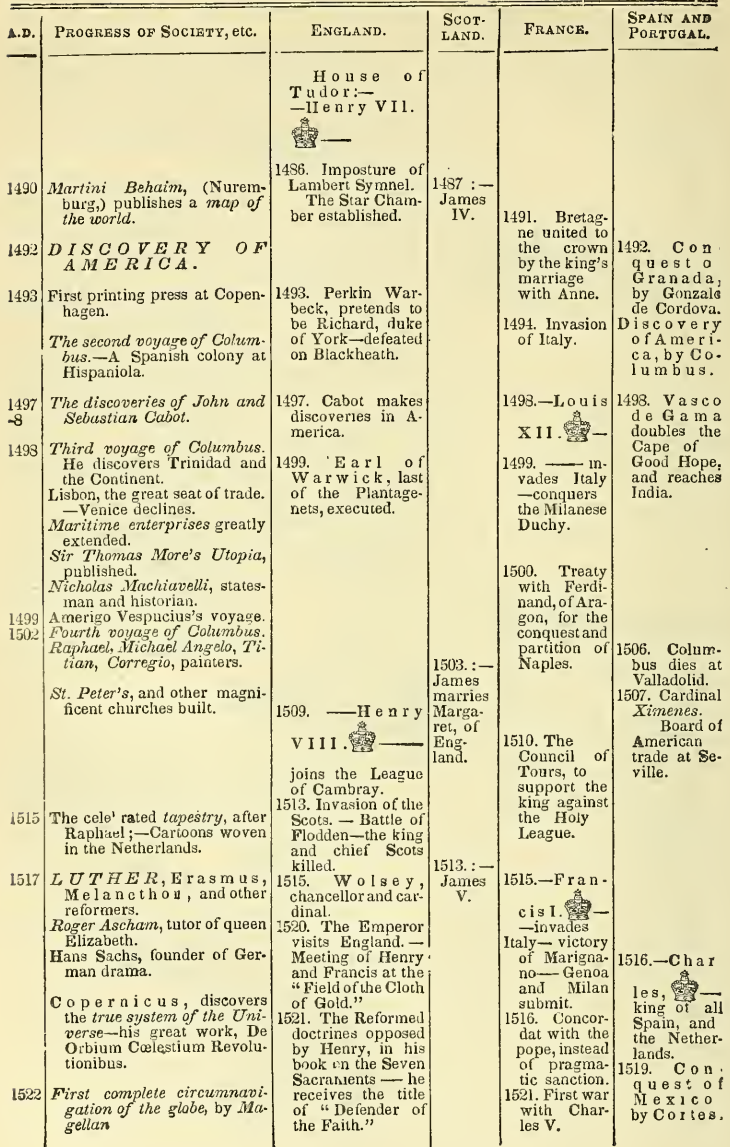 A.D.
PROGRESS OF SOCIETY, etc.
ENGLAND.
SCOT-
LAND.
FRANCE.
SPAIN AND
PORTUGAL.
1490 Martini Behaim, (Nurem-
burg,) publishes a map of
the world.
1492 DISCOVERY OF
AMERICA.
1493 First printing press at Copen-
hagen.
The second voyage of Colum-
bus.—A Spanish colony at
Hispaniola.
1497
-8
The discoveries of John and
Sebastian Cabot.
1498 Third voyage of Columbus.
He discovers Trinidad and
the Continent.
Lisbon, the great seat of trade.
—Venice declines.
Maritime enterprises greatly
extended.
Sir Thomas More's Utopia,
published.
Nicholas Machiavelli, states-
man and historian.
1499 Amerigo Vespucius's voyage.
1502 Fourth voyage of Columbus.
Raphael, Michael Angelo, Ti-
tian, Corregio, painters.
St. Peter's, and other magni-
ficent churches built.
1515 The cele' rated tapestry, after
Raphael;—Cartoons woven
in the Netherlands.
1517 LUTHER, Erasmus,
Melancthon, and other
reformers.
Roger Ascham, tutor of queen
Elizabeth.
Hans Sachs, founder of Ger-
man drama.
Copernicus, discovers
the true system of the Uni-
verse—his great work, De
Orbium Cœlestium Revolu-
tionibus.
1522 First complete circumnavi-
gation of the globe, by Ma-
gellan
House of
Tudor:—
—Henry VII.
—
1486. Imposture of
Lambert Symnel.
The Star Cham-
ber established.
1493. Perkin War-
beck, pretends to
be Richard, duke
of York—defeated
on Blackheath.
1497. Cabot makes
discoveries in A-
merica.
1499. Earl of
Warwick, last
of the Plantage-
nets, executed.
1509. —Henry
VIII. —
joins the League
of Cambray.
1513. Invasion of the
Scots. — Battle of
Flodden—the king
and chief Scots
killed.
1515. Wolsey,
chancellor and car-
dinal.
1520. The Emperor
visits England. —
Meeting of Henry
and Francis at the
"Field of the Cloth
of Gold."
1521. The Reformed
doctrines opposed
by Henry, in his
book on the Seven
Sacraments — he
receives the title
of "Defender of
the Faith."
1487 :—
James
IV.
1503. :—
James
marries
Marga-
ret, of
Eng-
land.
1513. :—
James
V.
1491. Bretag-
ne united to
the crown
by the king's
marriage
with Anne.
1494. Invasion
of Italy.
1498.—Louis
XII. —
1499. — in-
vades Italy
—conquers
the Milanese
Duchy.
1500. Treaty
with Ferdi-
nand, of Ara-
gon, for the
conquest and
partition of
Naples.
1510. The
Council of
Tours, to
support the
king against
the Holy
League.
1515.—Fran-
cis I. —
—invades
Italy— victory
of Marigna-
no— Genoa
and Milan
submit.
1516. Concor-
dat with the
pope, instead
of pragma-
tic sanction.
1521. First war
with Char-
les V.
1492. Con-
quest o
Granada,
by Gonzalo
de Cordova.
Discovery
of Ameri-
ca, by Co-
lumbus.
1498. Vasco
de Gama
doubles the
Cape of
Good Hope,
and reaches
India.
1506. Colum-
bus dies at
Valladolid.
1507. Cardinal
Ximenes.
Board of
American
trade at Se-
ville.
1516.—Char
les, —
king of all
Spain, and
the Nether-
lands.
1519. Con-
quest of
Mexico
by Cortes.